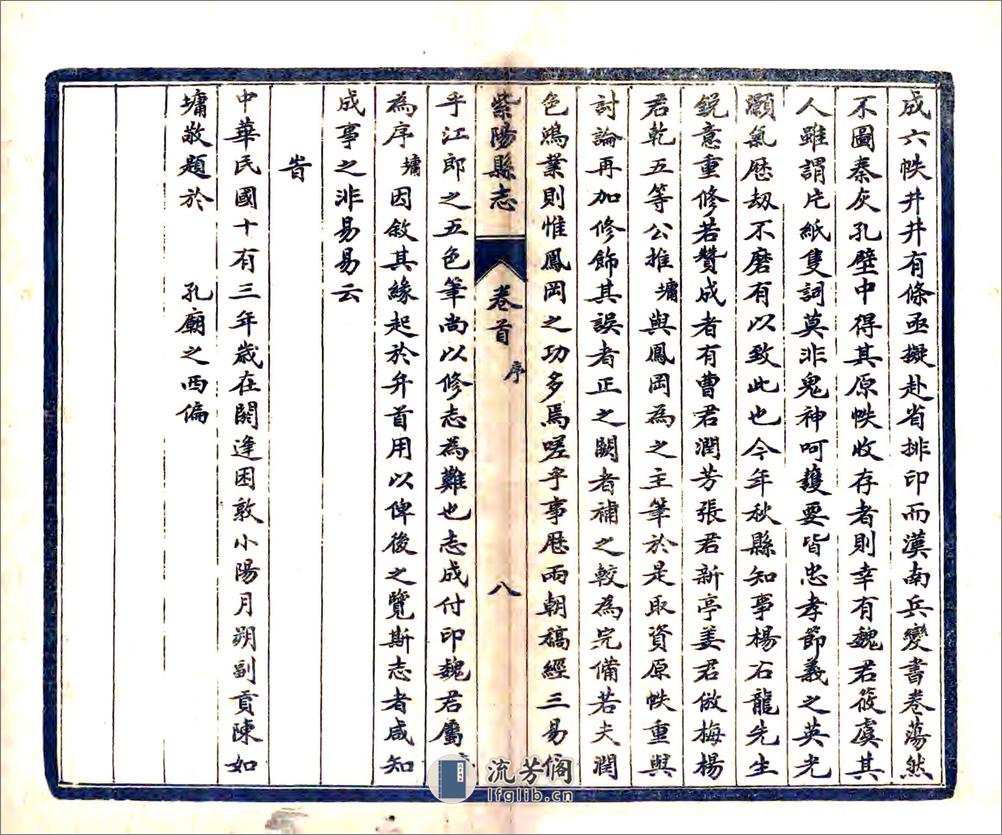 成六帙井井有條亟擬赴省排印而漢南兵變書卷蕩然
不圖秦灰孔壁中得其原帙收存者則幸有魏君筱虞其
人雖謂片紙隻詞莫非鬼神呵護要皆忠孝節義之英光
灝氣歷劫不磨有以致此也今年秋縣知事楊石龍先生
鋭意重修若贊成者有曹君潤芳張君新亭姜君倣梅楊
君乾五等公推墉與鳳岡為之主筆於是取資原帙重與
討論再加修飾其誤者正之闕者補之較為完備若夫潤
色鴻業則惟鳳岡之功多焉嗟乎事歷兩朝稿經三易
紫陽縣志 卷首 序 八
乎江郎之五色筆尚以修志為難也志成付印魏君屬
為序墉因敘其緣起於弁首用以俾後之覽斯志者咸知
成事之非易易云
旹
中華民國十有三年歲在閼逢困敦小陽月朔副貢陳如
墉敬題於 孔廟之西偏
流芳阁
lfglib.cn